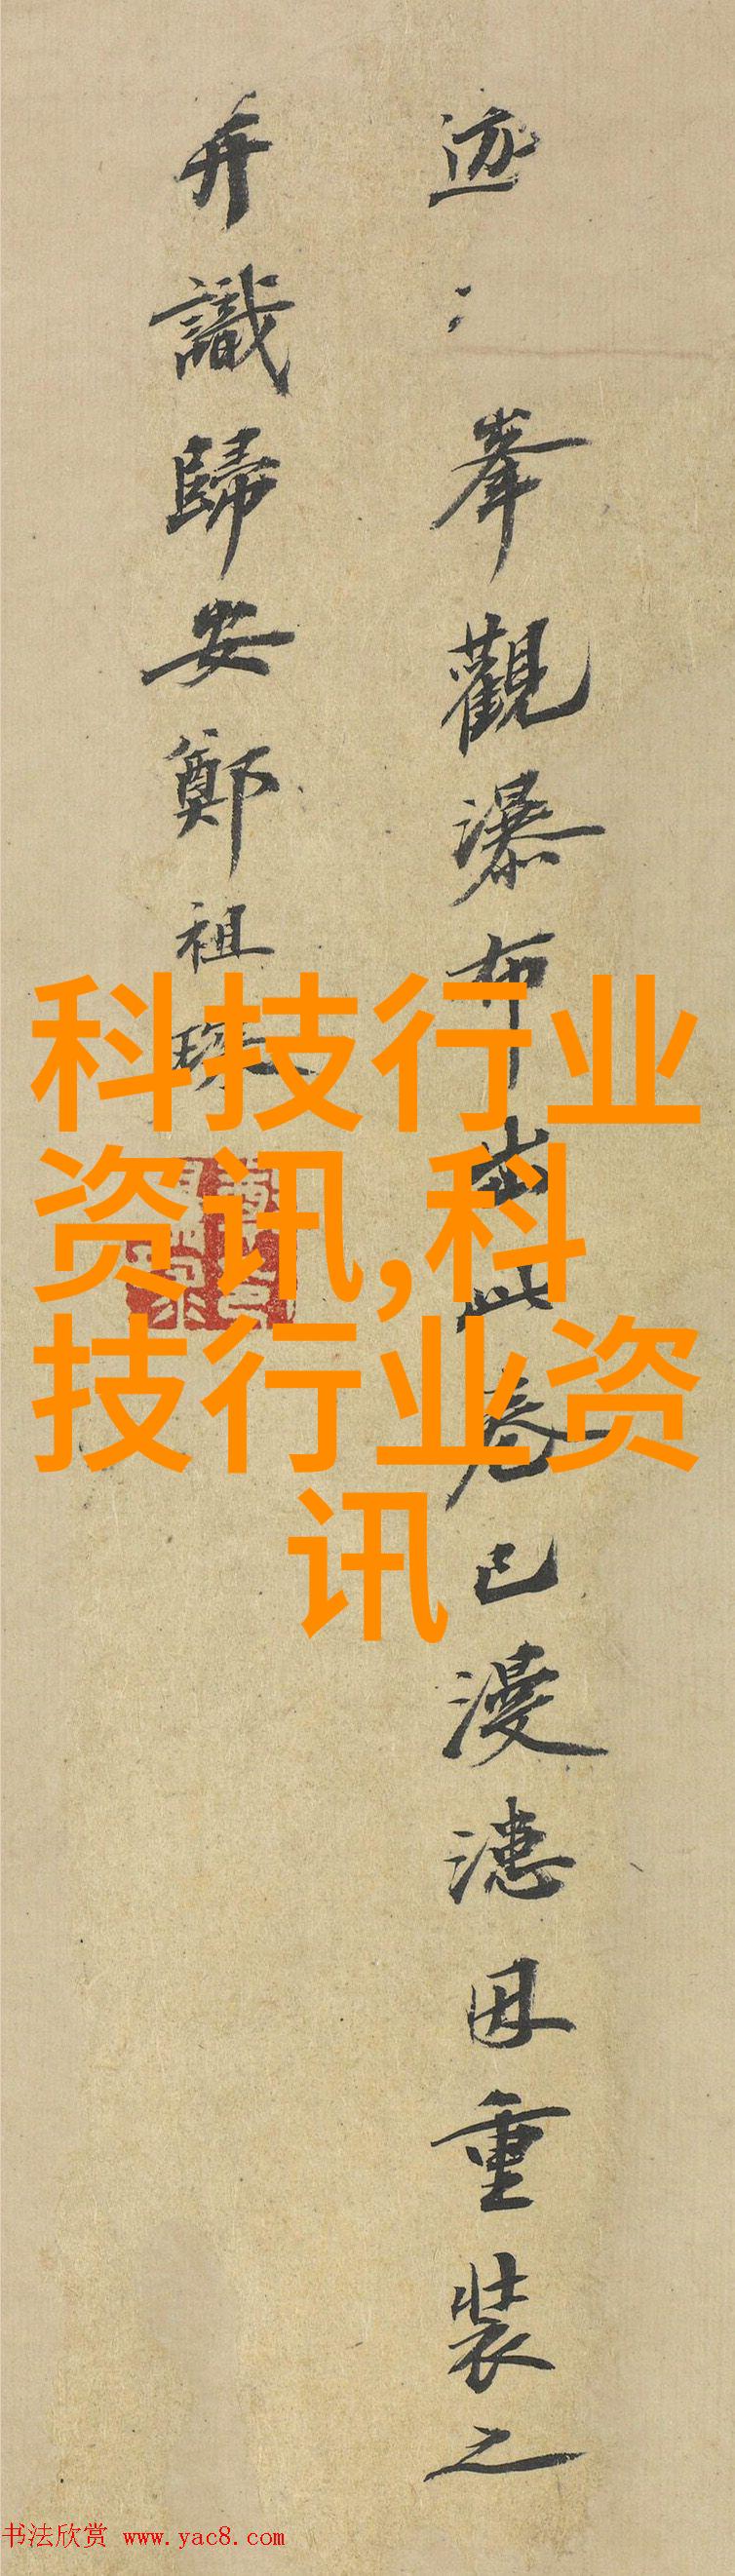 迹〻峯觀瀑布出此卷已漫漶因重裝之
并識歸安鄭祖琛
科技行业
资讯,科
技行业资
讯
书法欣赏 www.yac8.com